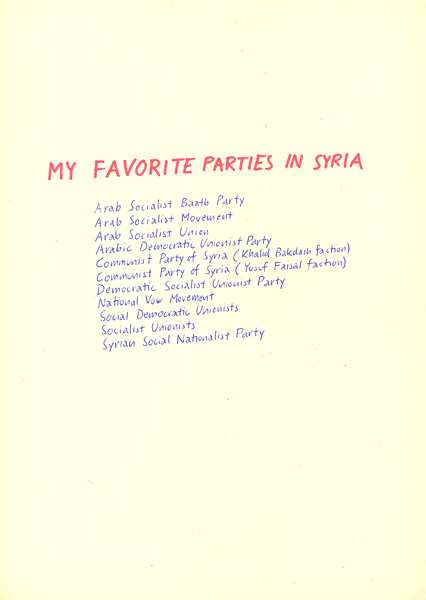 MY FAVORITE PARTIES IN SYRIA
Arab Socialist Baath Party
Arab Socialist Movement
Arab Socialist Union
Arabic Democratic Unionist Party
Communist Party of Syria (Khalid Bakdash faction)
Communist Party of Syria (Yusuf Faisal faction)
Democratic Socialist Unionist Party
National Vow Movement
Social Democratic Unionists
Socialist Unionists
Syrian Social Nationalist Party